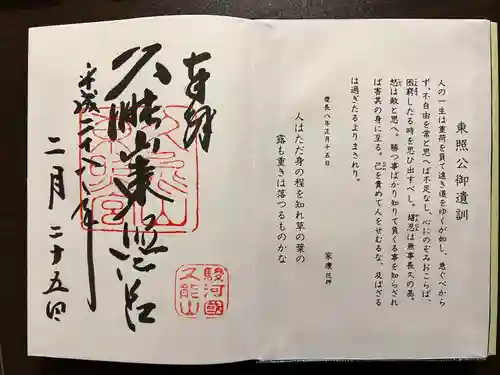 東照公御遺訓
人の一生は重荷を負て遠き道をゆくが如し、急ぐべから
ず、不自由を常と思へば不足なし、心にのぞみおこらば、
困窮したる時を思ひ出すべし、堪忍は無事長久の基、
怒は敵と思へ。勝つ事ばかり知りて負くる事を知らざれ
ば害其の身に至る。己を責めて人をせむるな、及ばざる
は過ぎたるよりまされり。
慶長八年正月十五日
人はただ身の程を知れ草の葉の
露も重きは落つるものかな
家康花押
奉拝
久能山東照宮
平成二十八年
二月二十五日
駿河國
久能山